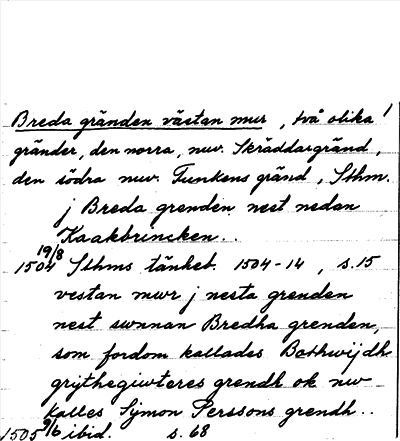 Breda gränden västan mur, två olika
gränder, den norra, nuv. Skräddargränd,
den södra nuv. Funkens gränd, Sthm.
j Breda grenden nest nedan
Kaakbrincken..
19/8 1504 Sthms tänkeb. 1504-14, s. 15
vestan mwr j nesta grenden
nest swnnan Bredha grenden,
som fordom kallades Bothwijdh
grythegiwteres grendh ok nw
kalles Symon Perssons grendh..
1505 9/6 ibid. s. 68